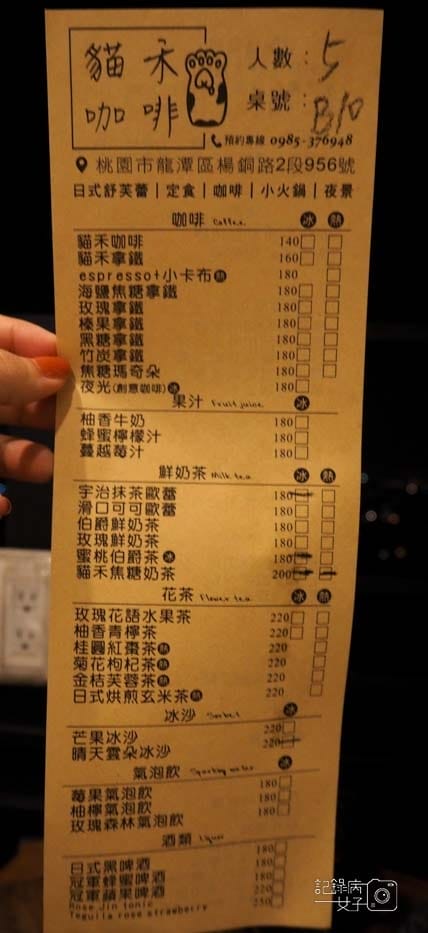 貓禾
咖啡
人數：5
桌號：B10
預約專線 0985-376948
桃園市龍潭區楊銅路2段956號
日式舒芙蕾｜定食｜咖啡｜小火鍋｜夜景
咖啡 Coffee 冰 熱
貓禾咖啡 140
貓禾拿鐵 160
espresso+小卡布熱 180
海鹽焦糖拿鐵 180
玫瑰拿鐵 180
榛果拿鐵 180
黑糖拿鐵 180
竹炭拿鐵 180
焦糖瑪奇朵 180
夜光(創意咖啡)冰 180
果汁 Fruit juice 冰
柚香牛奶 180
蜂蜜檸檬汁 180
蔓越莓汁 180
鮮奶茶 Milk tea 冰 熱
宇治抹茶歐蕾 180
滑口可可歐蕾 180
伯爵鮮奶茶 180
玫瑰鮮奶茶 180
蜜桃伯爵茶冰 180
貓禾焦糖奶茶 200
花茶 Flower tea 冰 熱
玫瑰花語水果茶 220
柚香青檸茶 220
桂圓紅棗茶熱 220
菊花枸杞茶熱 220
金桔芙蓉茶熱 220
日式烘煎玄米茶熱 220
冰沙 Sorbet 冰
芒果冰沙 220
晴天雲朵冰沙 220
氣泡飲 冰
莓果氣泡飲 180
柚檸氣泡飲 180
玫瑰森林氣泡飲 180
酒類 Liquor
日式黑啤酒 180
冠軍蜂蜜啤酒 180
冠軍蘋果啤酒 220
Rose Jin tonic 250
Tequila rose strawberry
記錄病
女子